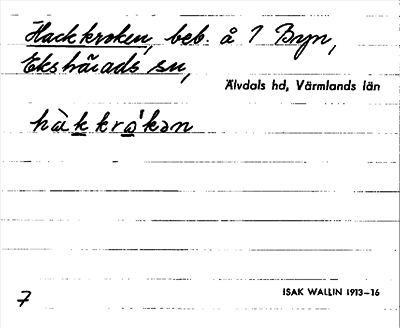 Hackkroken, beb. å 7 Byn,
Ekshärads sn,
Älvdals hd, Värmlands län
hàkkrɑ̀'kən
7
ISAK WALLIN 1913–16